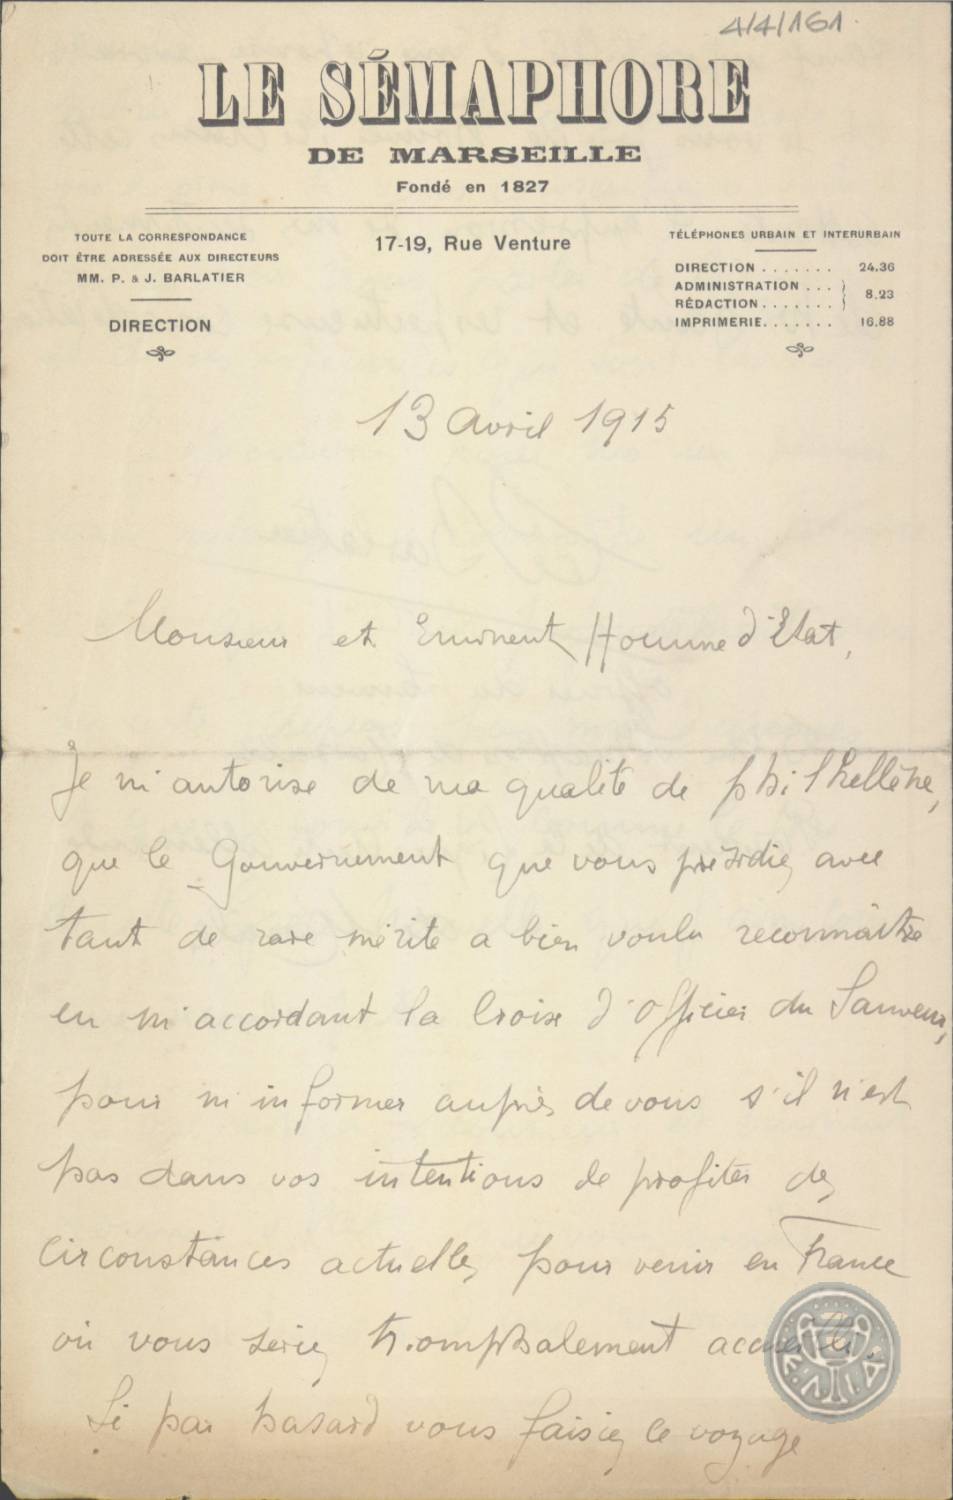 4/4/161
LE SÉMAPHORE
DE MARSEILLE
Fondé en 1827
17-19, Rue Venture
TOUTE LA CORRESPONDANCE
DOIT ÊTRE ADRESSÉE AUX DIRECTEURS
MM. P. & J. BARLATIER
DIRECTION
TÉLÉPHONES URBAIN ET INTERURBAIN
DIRECTION ....... 24.36
ADMINISTRATION ... } 8.23
RÉDACTION .......
IMPRIMERIE ....... 16.88
13 Avril 1915
Monsieur et Eminent Homme d'Etat,
Je m'autorise de ma qualité de philhellène,
que le Gouvernement que vous présidiez avec
tant de rare mérite a bien voulu reconnaître
en m'accordant la Croix d'Officier du Sauveur,
pour m'informer auprès de vous s'il n'est
pas dans vos intentions de profiter des
circonstances actuelles pour venir en France
où vous seriez triomphalement accueilli.
Si par hasard vous faisiez ce voyage